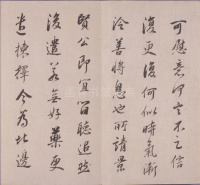 可慰意言不之信
復更復何似時氣漸
冷善將息也所請景
賢公即宜留聽追
後遣若無好藥更
遣揀擇今為北邊